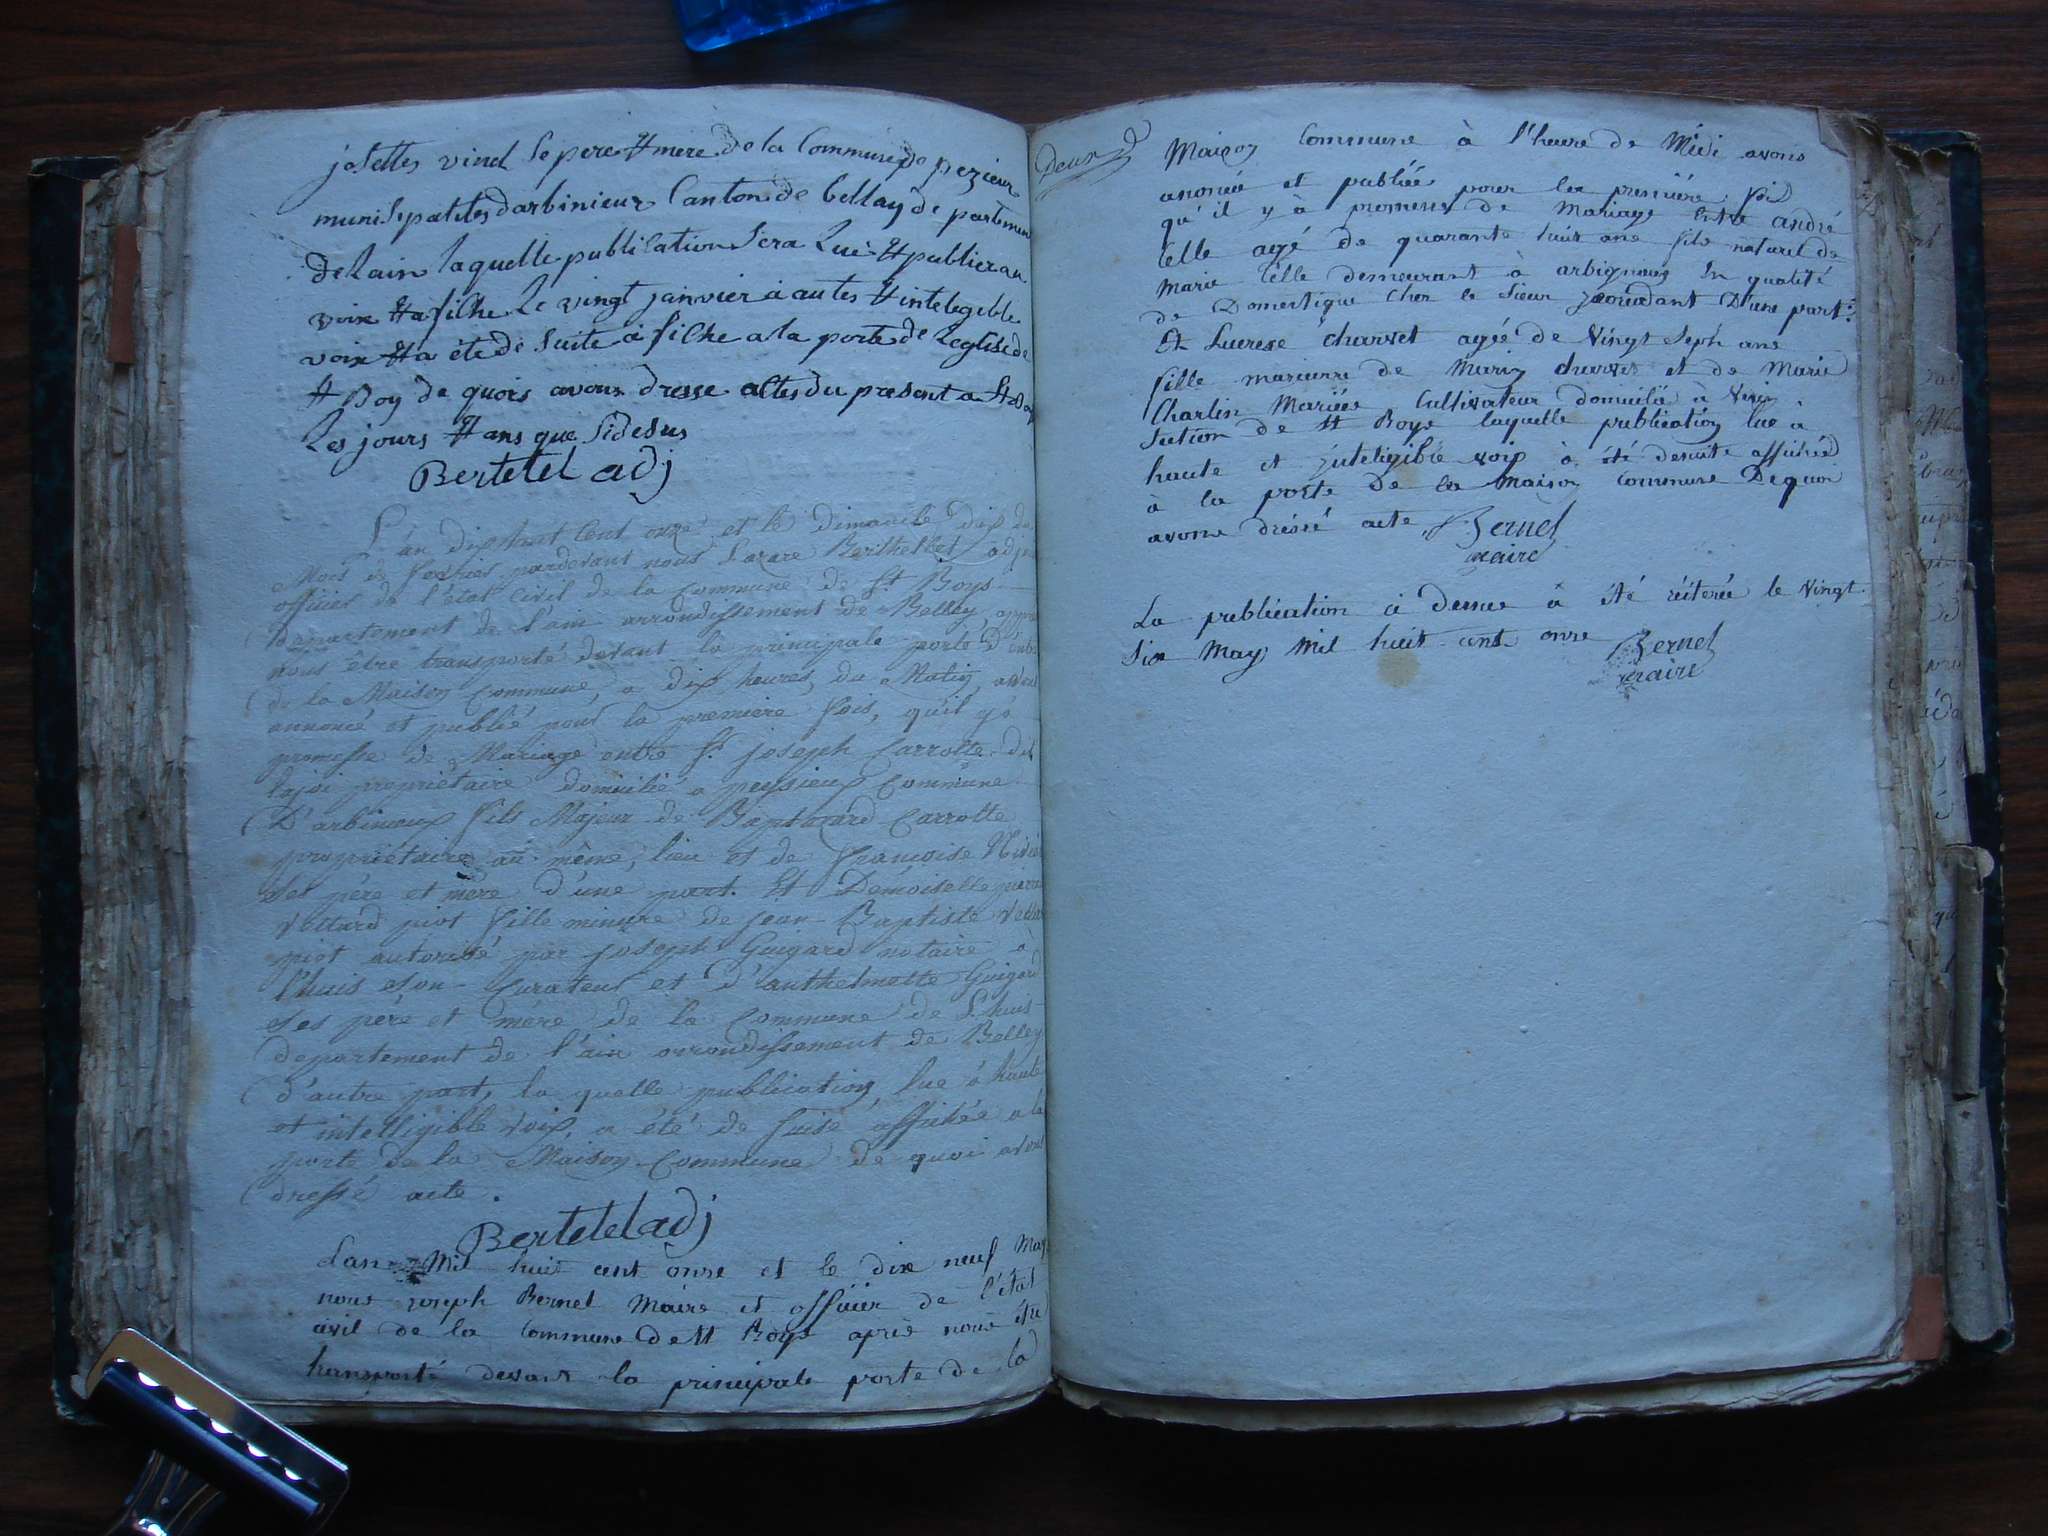 josettes vind Se pere & mere de la Commune de pezieux
munisepalites darbinieux Canton de bellay departement
De Lain laquelle publication Sera Lui & publier au
voix & afilhe Le vingt janvier à autes & intelegible
voix & a été de Suite à filhe a la porte de Leglise de
St Boy de quois avons dresse altes du présent a St Boy
Les jours & ans que Sidesus
Bertetel adj
L'an dixhuit Cent onze et le dimanche dix du
Mois de fevrier pardevant nous Lazare Berthellet adjoint
officier de l'état Civil de la Commune de St Boys
departement de l'ain arrondissement de Belley, après
nous être transporté devant la principale porte D'entré
de la Maison Commune, a dix heures du Matin avons
annoncé et publié pour la première fois, qu'il y a
promesse de Mariage entre Sr joseph Carrotte dit
lajoi propriétaire domicilié a peyzieux Commune
D'arbinieux fils Majeur de Carrotte
propriétaire au même lieu et de françoise
Ses père et mère d'une part. Et Demoiselle
Vettard piot fille mineure de Jean Baptiste Vettard
piot autorisée par joseph Guigard notaire à
l'huis son Curateur et d'anthelmette Guigard
Ses père et mère de la Commune de L'huis
departement de l'ain arrondissement de Belley
d'autre part, la quelle publication, lue à haute
et intelligible voix, a été de suise affichée a la
porte de la Maison Commune de quoi avons
dressé acte.
Bertetel adj
Lan Mil huit cent onze et le dix neuf May
nous joseph Bernel Maire et officier de l'état
civil de la Commune de St Boys après nous être
transporté devant la principale porte de la
Deux
Maison Commune à l'heure de Midi avons
anoncé et publiée pour la première fois
qu'il y à promesses de Mariage Entre andré
Celle agé de quarante huit ans fils naturel de
Marie Celle demeurant à arbignieu En qualité
de Domestique Chez le Sieur D'une part
Et Lucrese Charvet agée de Vingt Sept ans
fille majeure de Marin Charvet et de Marie
Charlin Mariées Cultivateur domicilié à
Section de St Boys laquelle publication lue à
haute et jnteligible voix à été desuite affichée
à la porte de la Maison Commune De quoi
avons dréssé acte. Bernel
maire
La publication ci dessus à été réiterée le Vingt
Six May Mil huit cent onze Bernel
maire